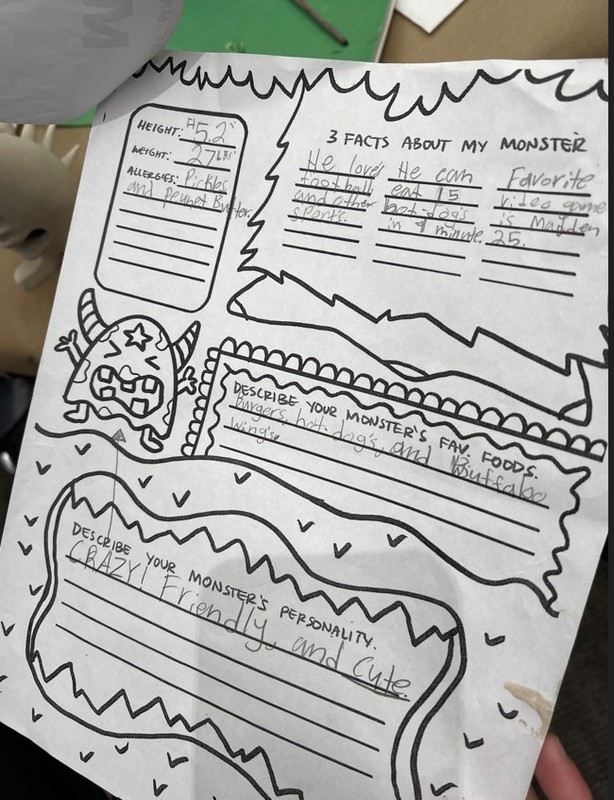 HEIGHT: 5.2"
WEIGHT: 27LBS
ALLERGIES: Pickles
and Peunet Burter.
3 FACTS ABOUT MY MONSTER
He loves
football
and other
sports.
He can
eat 15
hot-dogs
in 1 minute.
Favorite
video game
is Madden
25.
DESCRIBE YOUR MONSTER'S FAV. FOODS.
Burgers, hot-dogs, and Buffaloe
wings.
DESCRIBE YOUR MONSTER'S PERSONALITY.
CRAZY! Friendly, and Cute.